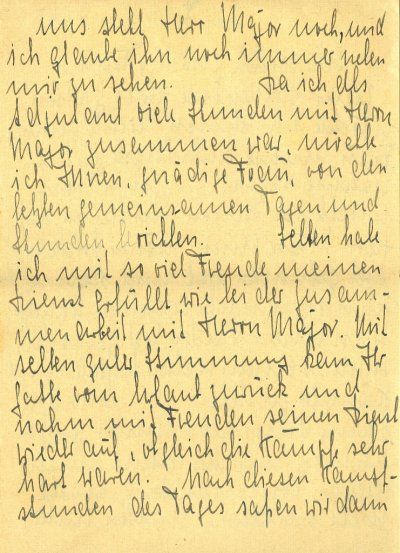 uns stell Herr Major noch, und
ich glaube ihn noch immer neben
mir zu sehen. Da ich als
Adjutant viele Stunden mit Herrn
Major zusammen war, möchte
ich Ihnen, gnädige Frau, von den
letzten gemeinsamen Tagen und
Stunden berichten. Selten habe
ich mit so viel Freude meinen
Dienst erfüllt wie bei der Zusam-
menarbeit mit Herrn Major. Mit
selten guter Stimmung kam Ihr
Gatte vom Urlaub zurück und
nahm mit Freuden seinen Dienst
wieder auf, obgleich die Kämpfe sehr
hart waren. Nach diesen Kampf-
stunden des Tages saßen wir dann